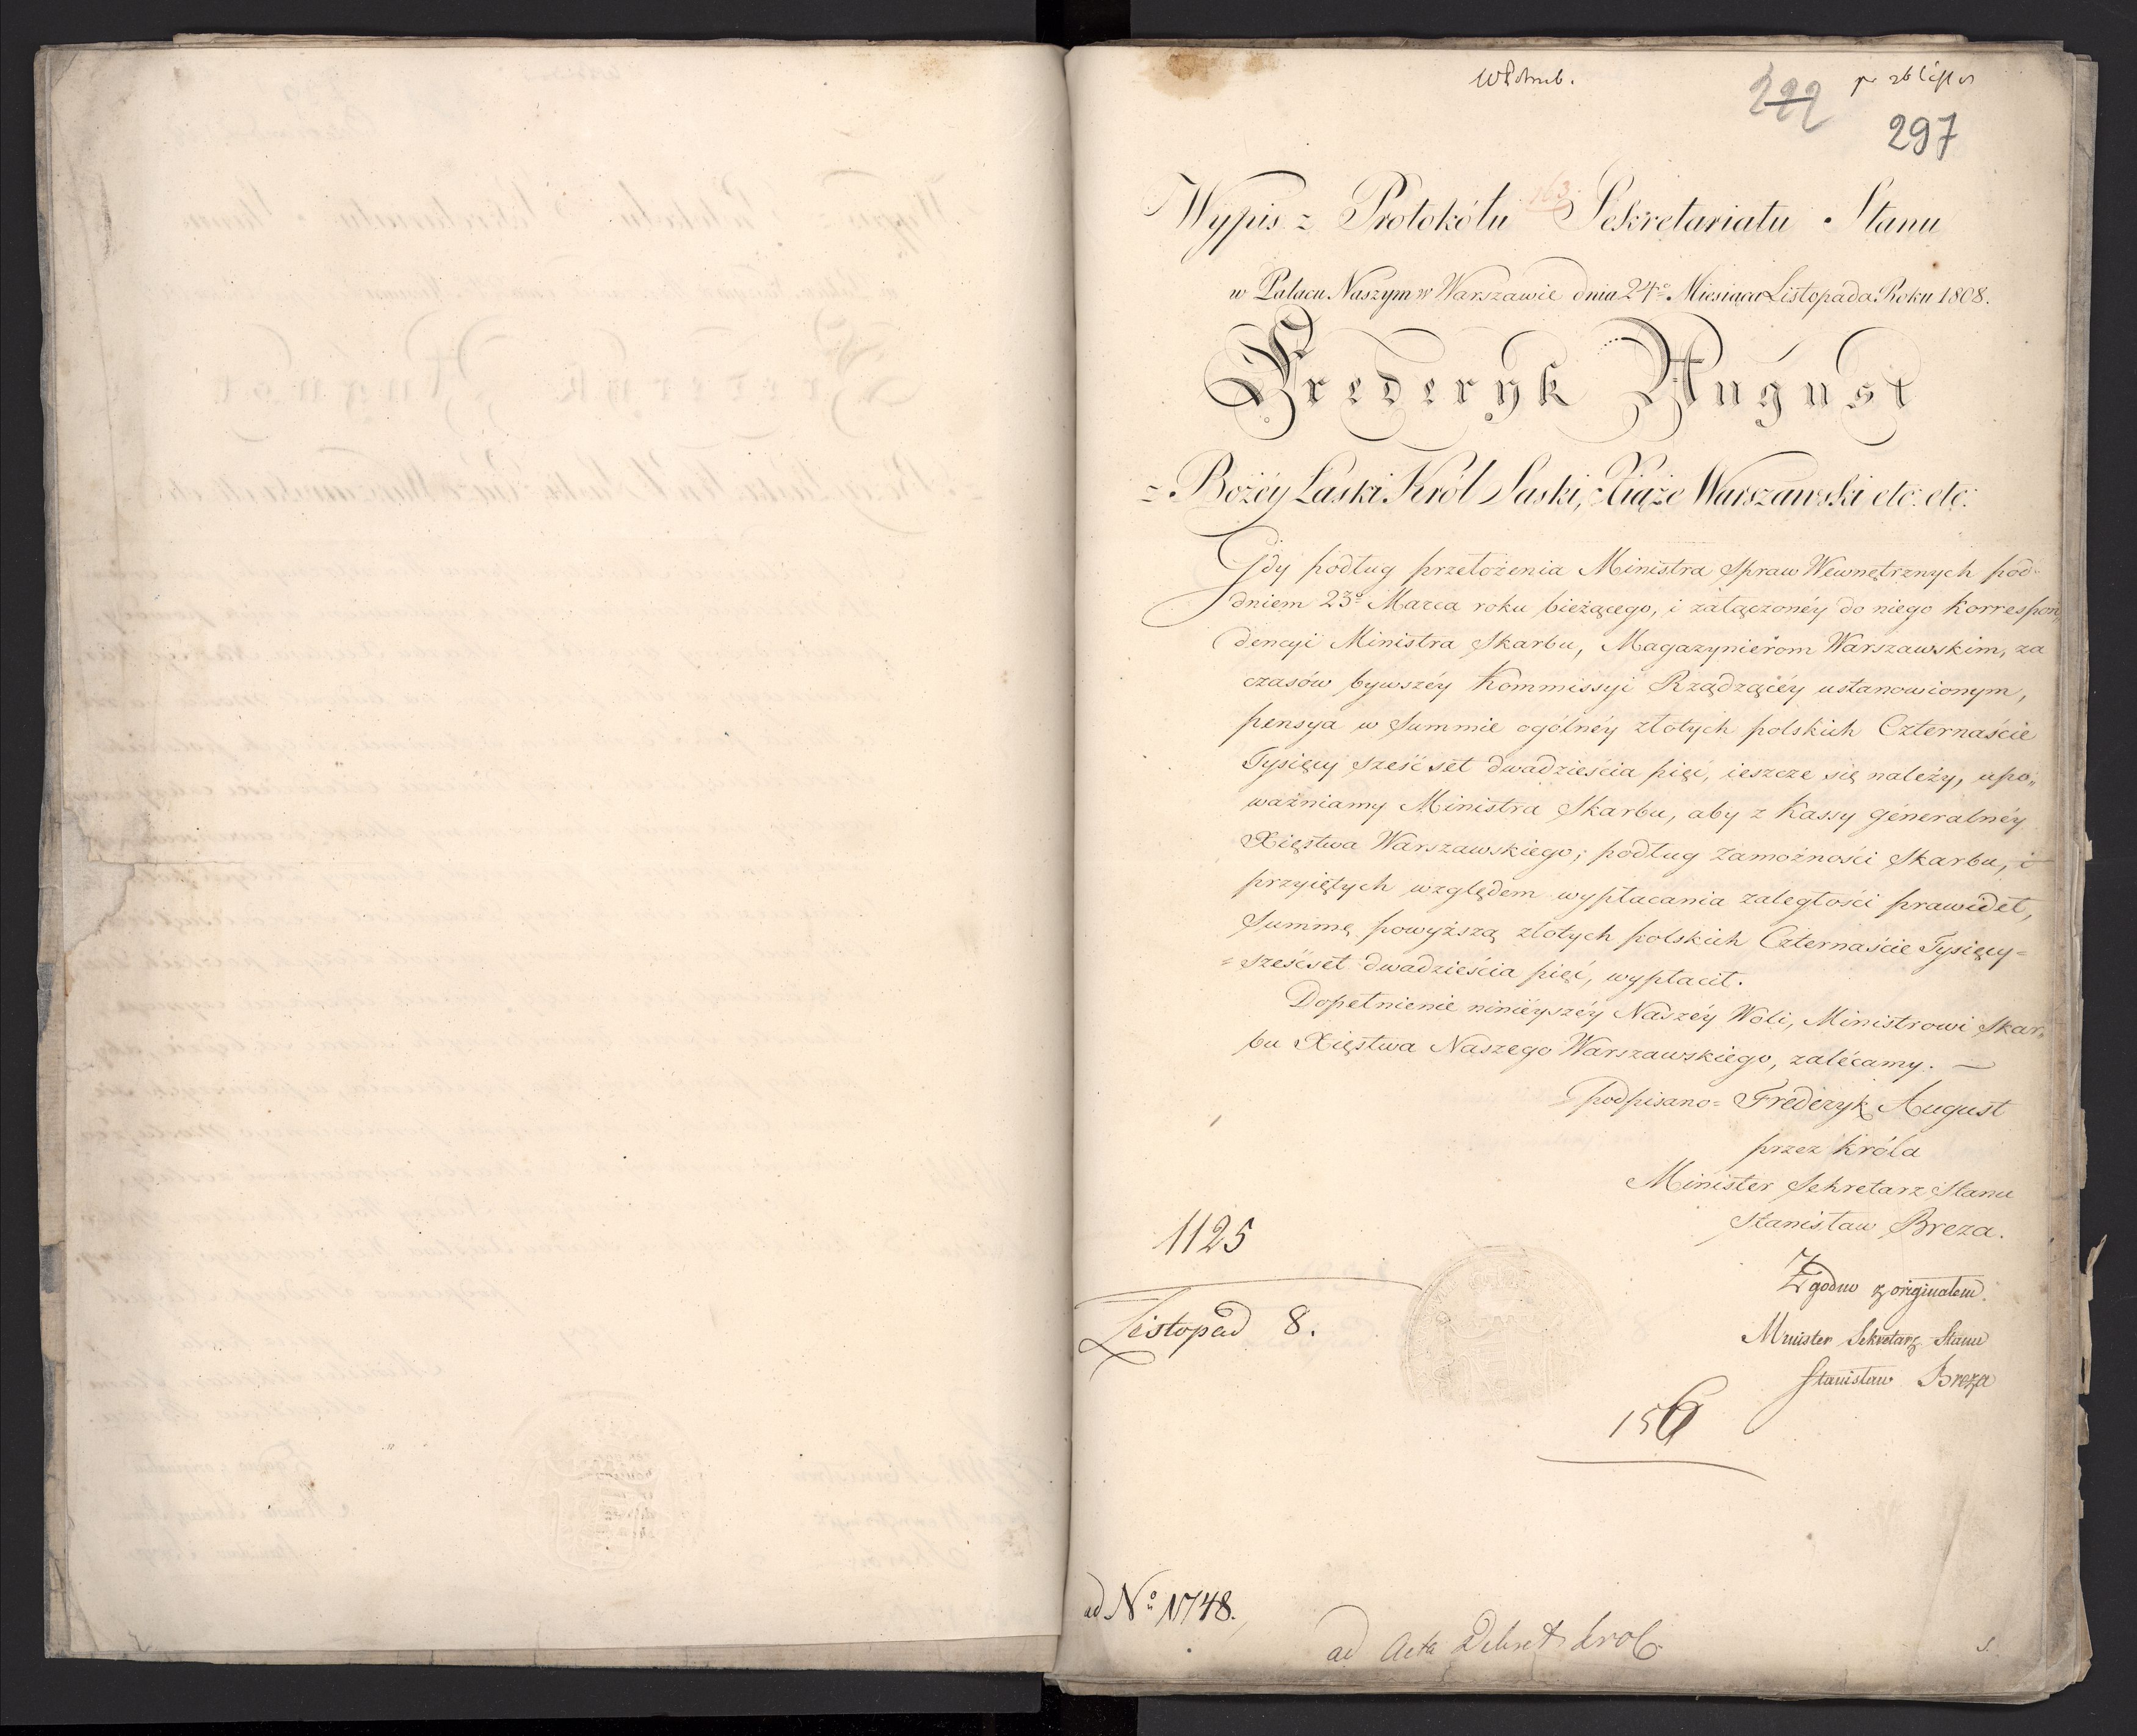 297
163.
Wypis z Protokółu Sekretariatu Stanu
w Pałacu Naszym w Warszawie dnia 24º Miesiąca Listopada Roku 1808.
Frederyk August
z Bożéy Łaski Król Saski, Xiąże Warszawski etc: etc:
Gdy podług przełożenia Ministra Spraw Wewnętrznych pod
dniem 23º Marca roku bieżącego, i załączonéy do niego korrespon„
dencyi Ministra Skarbu, Magazynierom Warszawskim, za
czasów bywszéy Kommissyi Rządzącéy ustanowionym,
pensya w Summie ogólnéy złotych polskich Czternaście
Tysięcy sześćset dwadzieścia pięć, ieszcze się należy, upo„
ważniamy Ministra Skarbu, aby z Kassy generalnéy
Xięstwa Warszawskiego; podług zamożności Skarbu, i
przyiętych względem wypłacania zaległości prawideł,
Summę powyższą złotych polskich Czternaście Tysięcy=
= sześćset dwadzieścia pięć, wypłacił.
Dopełnienie ninieyszéy Naszéy Woli, Ministrowi Skar„
bu Xięstwa Naszego Warszawskiego, zalécamy. —
podpisano= Frederyk August
przez Króla
Minister Sekretarz Stanu
Stanisław Breza.
1125
Listopad 8.
Zgodno z originałem.
Minister Sekretarz Stanu
Stanisław Breza
156
ad Nº 1748.
ad Acta Dekret Krol